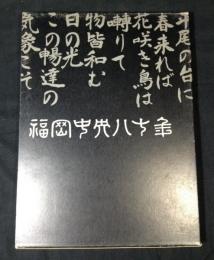 斗尾の台に
春来れば
花咲き鳥は
囀りて
物皆和む
日の光
この暢達の
気象こそ
福岡中央八十年